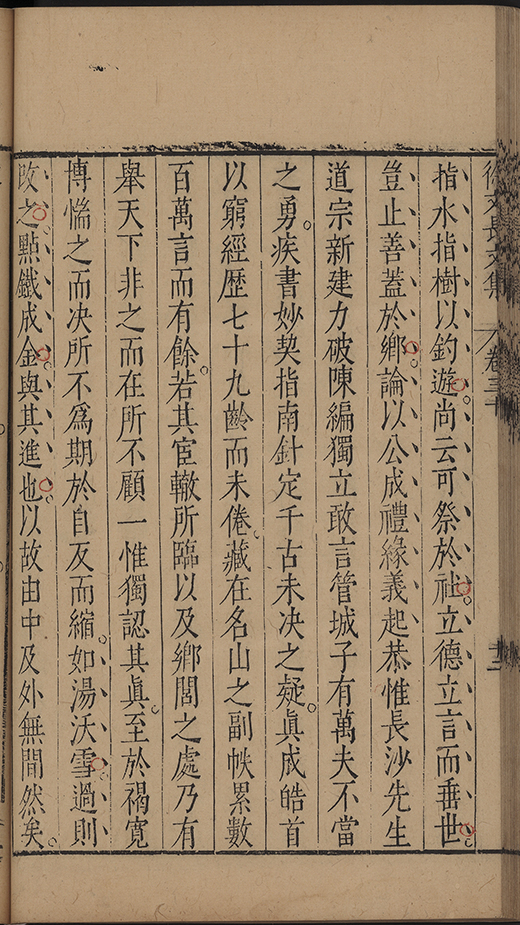 徐文長文集 卷三十 十二
指水指樹以釣遊尚云可祭於社立德立言而垂世
豈止善蓋於鄉論以公成禮緣義起恭惟長沙先生
道宗新建力破陳編獨立敢言管城子有萬夫不當
之勇疾書妙契指南針定千古未决之疑真成皓首
以窮經歷七十九齡而未倦藏在名山之副帙累數
百萬言而有餘若其宦轍所臨以及鄉閭之處乃有
舉天下非之而在所不顧一惟獨認其真至於褐寬
博惴之而决所不為期於自反而縮如湯沃雪過則
改之點鐵成金與其進也以故由中及外無間然矣